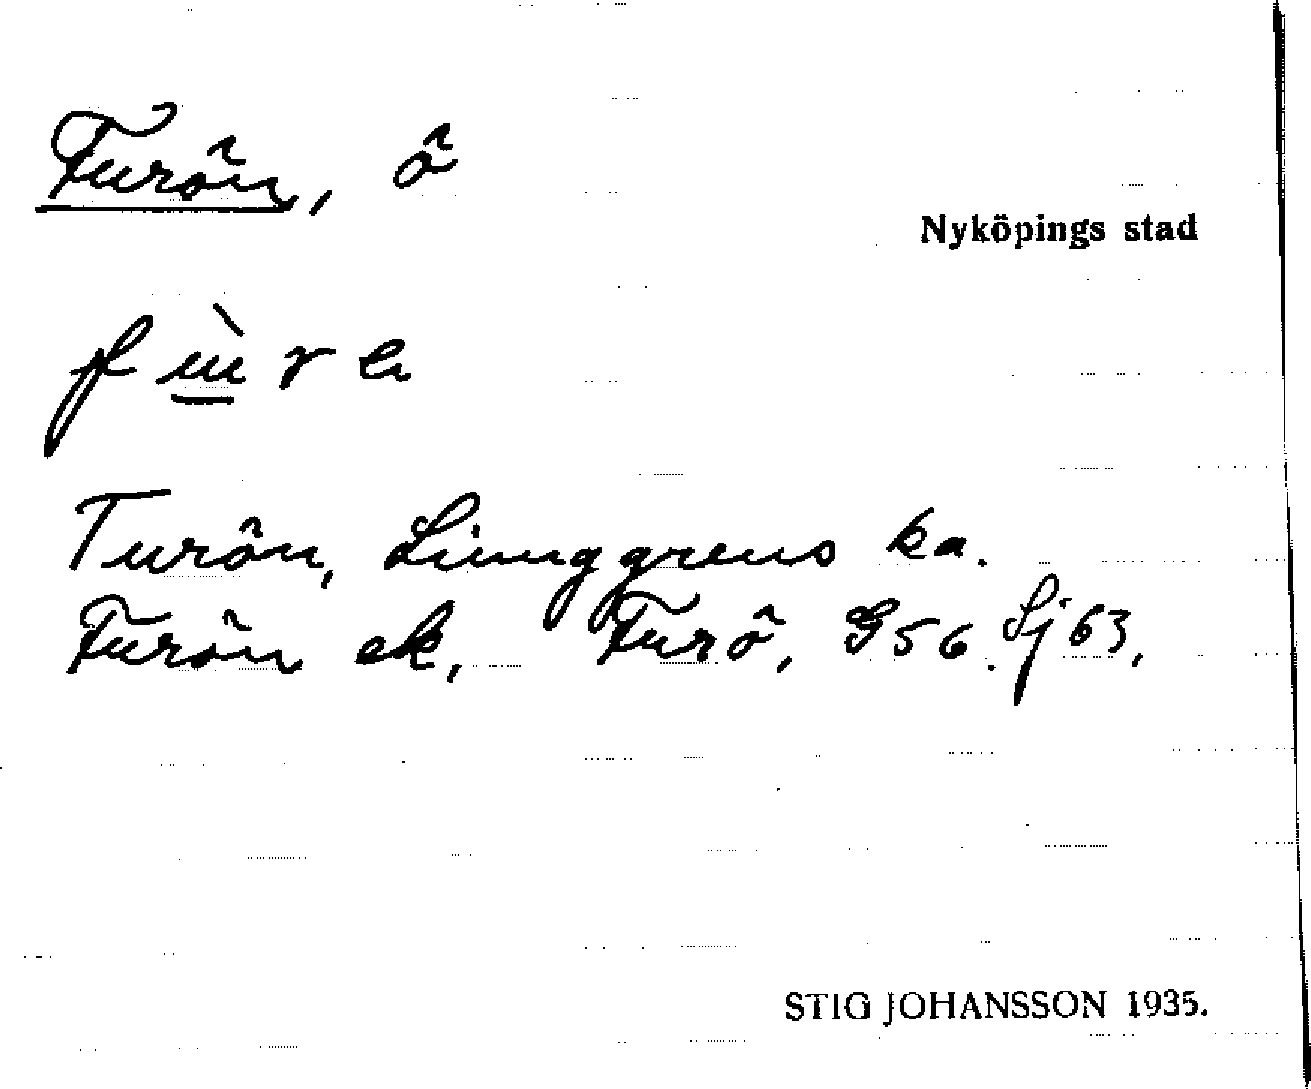 Furön, ö
Nyköpings stad
Turön, Liunggrens ka.
Furön ek, Furö, G 56. Sj 63,
STIG JOHANSSON 1935.